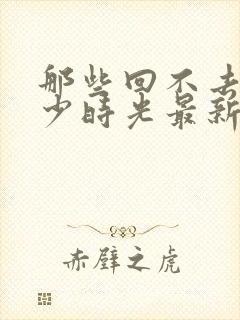 那些回不去
少时光最新
赤壁之虎